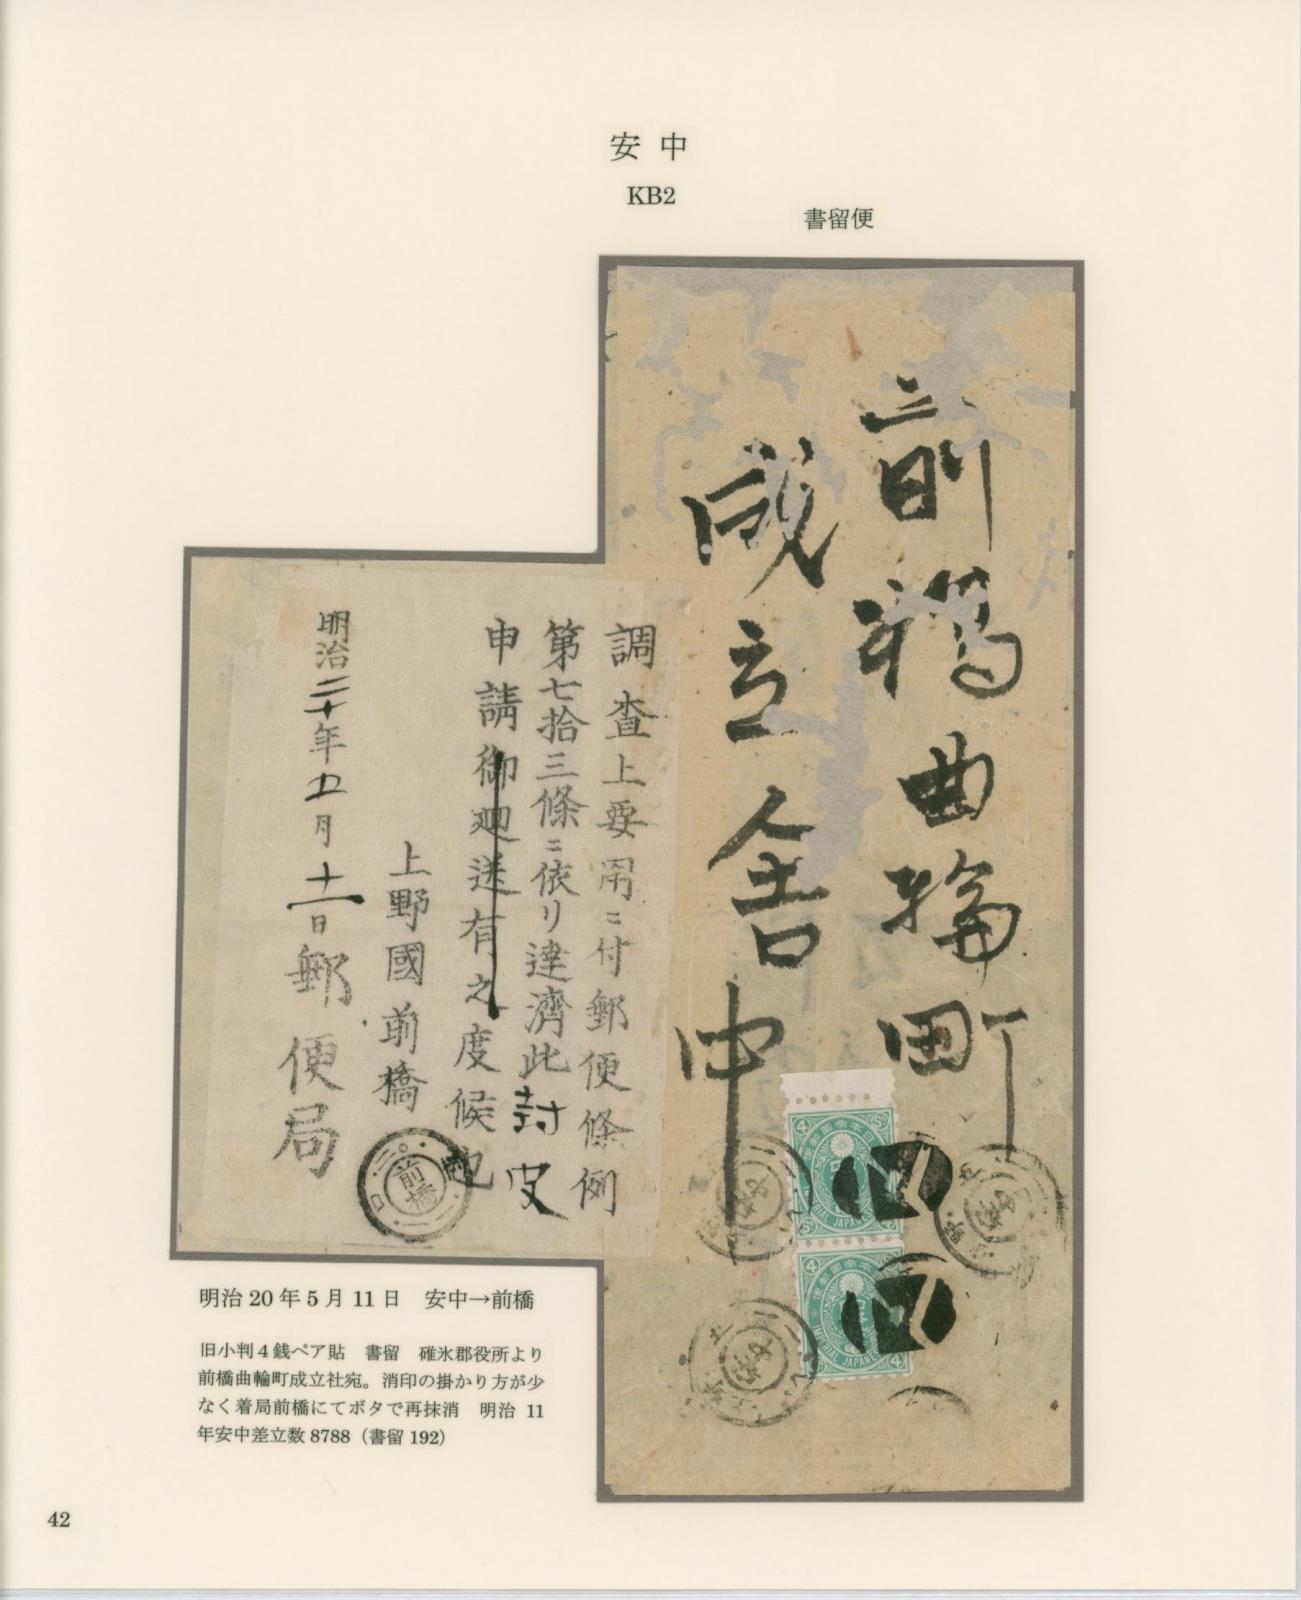 安中
KB2
書留便
前橋曲輪町
成立舎中
調査上要用ニ付郵便條例
第七拾三條ニ依リ達濟此封皮
申請御廻送有之度候也
上野國前橋
明治二十年五月十一日郵便局
前橋
明治20年5月11日 安中→前橋
旧小判4銭ペア貼 書留 碓氷郡役所より
前橋曲輪町成立社宛。消印の掛かり方が少
なく着局前橋にてボタで再抹消 明治 11
年安中差立数8788（書留192）
42